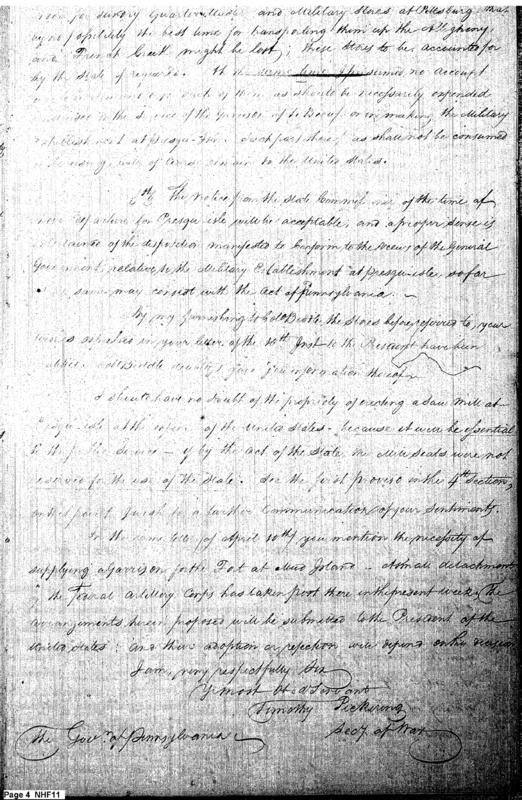 now for sundry Quarter Master and Military Stores at Pittsburg, that
by no possibility the best time for transporting them up the Allegheny,
and French Creek might be lost; these Stores to be accounted for
by the State if required. If the same assumed, no account
each of them as should be necessarily expended
in the service of the Garrison of Le Beuf, or in making the Military
Establishment at Presqu-Isle. Such part thereof as shall not be consumed
will of course remain to the United States.
6th The Notice from the State Commissioners, of the time of
departure for Presqu-isle will be acceptable, and a proper sense is
entertained of the disposition manifested to Conform to the Views of the General
Government, relative to the Military Establishment at presqu-isle, so far
as the same may consist with the Act of Pennsylvania. —
By my furnishing to Col Biddle the Stores before referred to, your
wishes in your letter of the 10th Inst to the President have been
Col Biddle doubtless gave you information thereof.
I should have no doubt of the propriety of erecting a Saw Mill at
Presqu-isle at the expence of the United States - because it will be essential
to the public Service — if by the Act of the State, the Mill Seats were not
reserved for the use of the State. See the first proviso in the 4th Section,
on this point I wish for a further Communication of your Sentiments.
In the same letter of April 10th, you mention the necessity of
supplying a Garrison for the Fort at Mud Island — A small detachment
of the Federal Artillery Corps has taken post there in the present week. The
arrangements herein proposed will be submitted to the President of the
United States: and their adoption or rejection will depend on his decision
I am, very respectfully Sir
Yr most Obed Servant
Timothy Pickering
Secy of War
The Govr of Pennsylvania
Page 4 NHF11